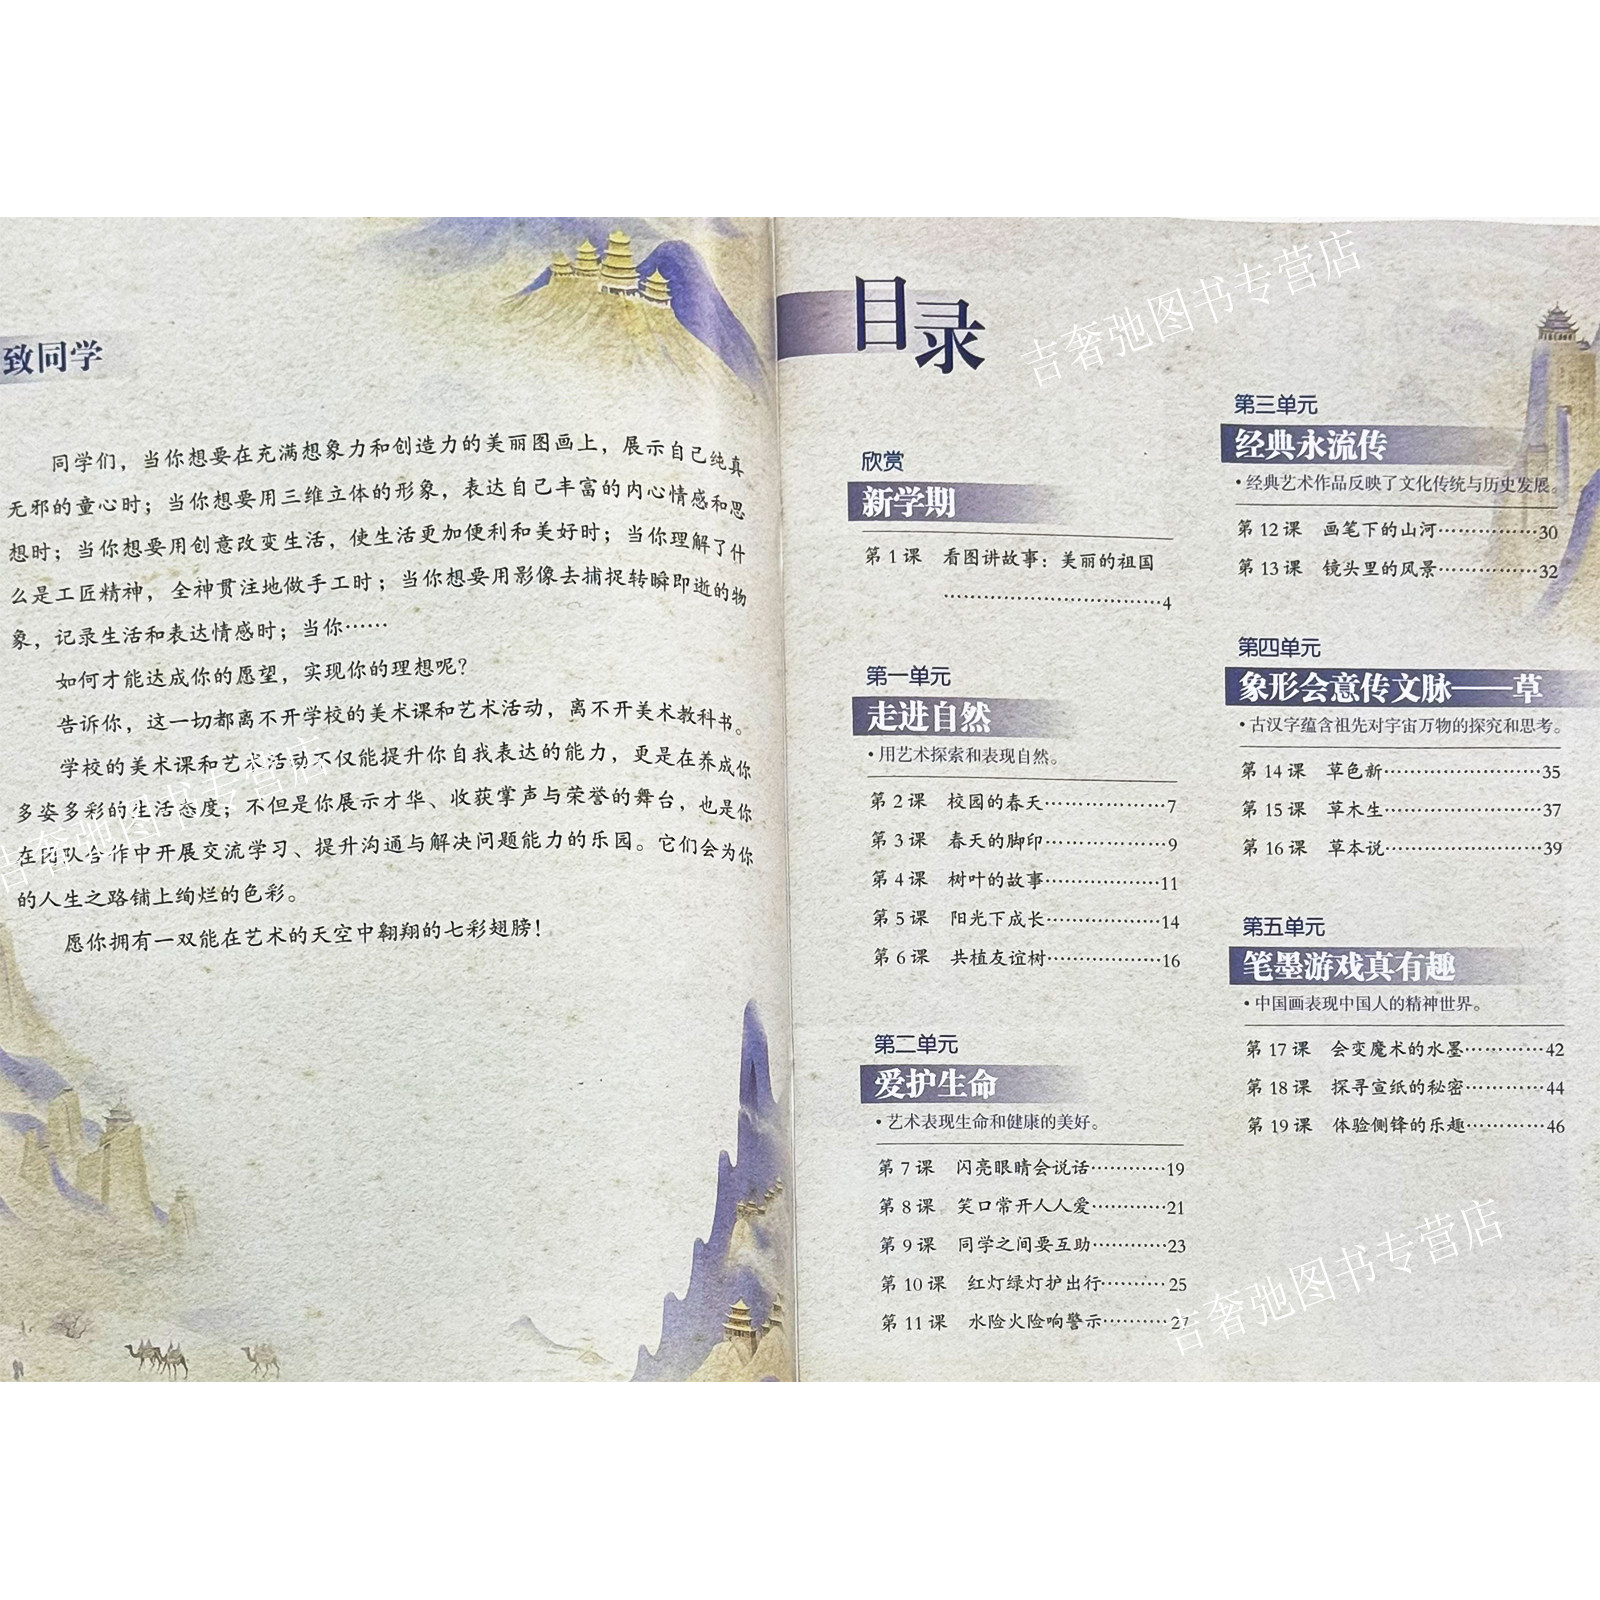 致同学
同学们，当你想要在充满想象力和创造力的美丽图画上，展示自己纯真
无邪的童心时；当你想要用三维立体的形象，表达自己丰富的内心情感和思
想时；当你想要用创意改变生活，使生活更加便利和美好时；当你理解了什
么是工匠精神，全神贯注地做手工时；当你想要用影像去捕捉转瞬即逝的物
象，记录生活和表达情感时；当你……
如何才能达成你的愿望，实现你的理想呢？
告诉你，这一切都离不开学校的美术课和艺术活动，离不开美术教科书。
学校的美术课和艺术活动不仅能提升你自我表达的能力，更是在养成你
多姿多彩的生活态度；不但是你展示才华、收获掌声与荣誉的舞台，也是你
在团队合作中开展交流学习、提升沟通与解决问题能力的乐园。它们会为你
的人生之路铺上绚烂的色彩。
愿你拥有一双能在艺术的天空中翱翔的七彩翅膀！
吉奢弛图书专营店
目录
吉奢弛图书专营店
欣赏
新学期
第 1 课 看图讲故事：美丽的祖国
……………………………4
第一单元
走进自然
• 用艺术探索和表现自然。
第 2 课 校园的春天………………7
第 3 课 春天的脚印………………9
第 4 课 树叶的故事………………11
第 5 课 阳光下成长………………14
第 6 课 共植友谊树………………16
第二单元
爱护生命
• 艺术表现生命和健康的美好。
第 7 课 闪亮眼睛会说话…………19
第 8 课 笑口常开人人爱…………21
第 9 课 同学之间要互助…………23
第 10 课 红灯绿灯护出行………25
第 11 课 水险火险响警示………27
第三单元
经典永流传
• 经典艺术作品反映了文化传统与历史发展。
第 12 课 画笔下的山河……………30
第 13 课 镜头里的风景……………32
第四单元
象形会意传文脉——草
• 古汉字蕴含祖先对宇宙万物的探究和思考。
第 14 课 草色新……………………35
第 15 课 草木生……………………37
第 16 课 草本说……………………39
第五单元
笔墨游戏真有趣
• 中国画表现中国人的精神世界。
第 17 课 会变魔术的水墨…………42
第 18 课 探寻宣纸的秘密…………44
第 19 课 体验侧锋的乐趣…………46
吉奢弛图书专营店